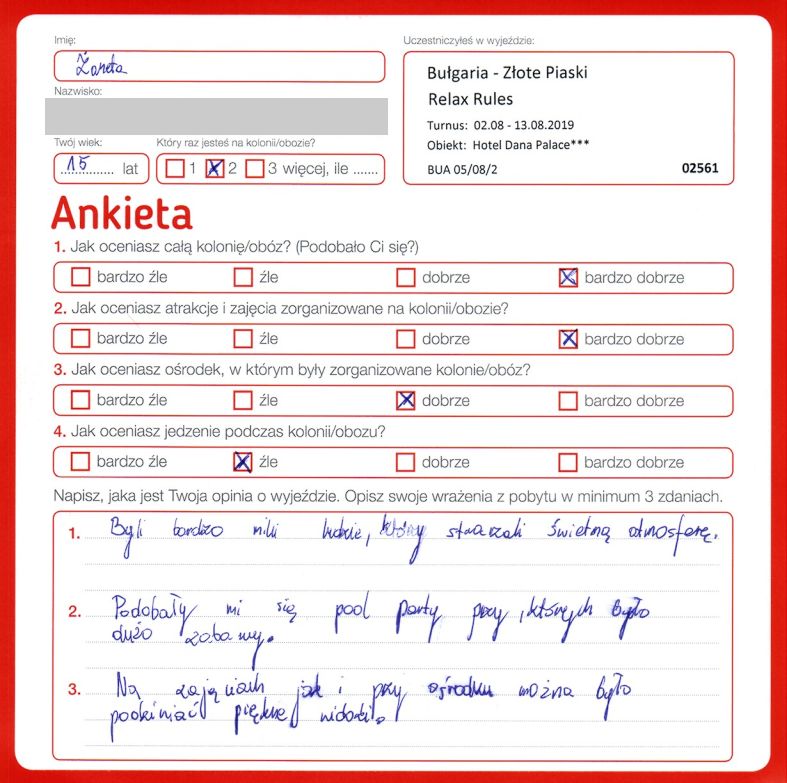 Imię:
Żaneta
Nazwisko:
Twój wiek:
15 lat
Który raz jesteś na kolonii/obozie?
1 2 3 więcej, ile .......
Uczestniczyłeś w wyjeździe:
Bułgaria - Złote Piaski
Relax Rules
Turnus: 02.08 - 13.08.2019
Obiekt: Hotel Dana Palace***
BUA 05/08/2 02561
Ankieta
1. Jak oceniasz całą kolonię/obóz? (Podobało Ci się?)
bardzo źle źle dobrze bardzo dobrze
2. Jak oceniasz atrakcje i zajęcia zorganizowane na kolonii/obozie?
bardzo źle źle dobrze bardzo dobrze
3. Jak oceniasz ośrodek, w którym były zorganizowane kolonie/obóz?
bardzo źle źle dobrze bardzo dobrze
4. Jak oceniasz jedzenie podczas kolonii/obozu?
bardzo źle źle dobrze bardzo dobrze
Napisz, jaka jest Twoja opinia o wyjeździe. Opisz swoje wrażenia z pobytu w minimum 3 zdaniach.
1. Byli bardzo mili ludzie, którzy stwarzali świetną atmosferę.
2. Podobały mi się pool party przy, których było
dużo zabawy.
3. Na zajęciach jak i przy ośrodku można było
podziwiać piękne widoki.